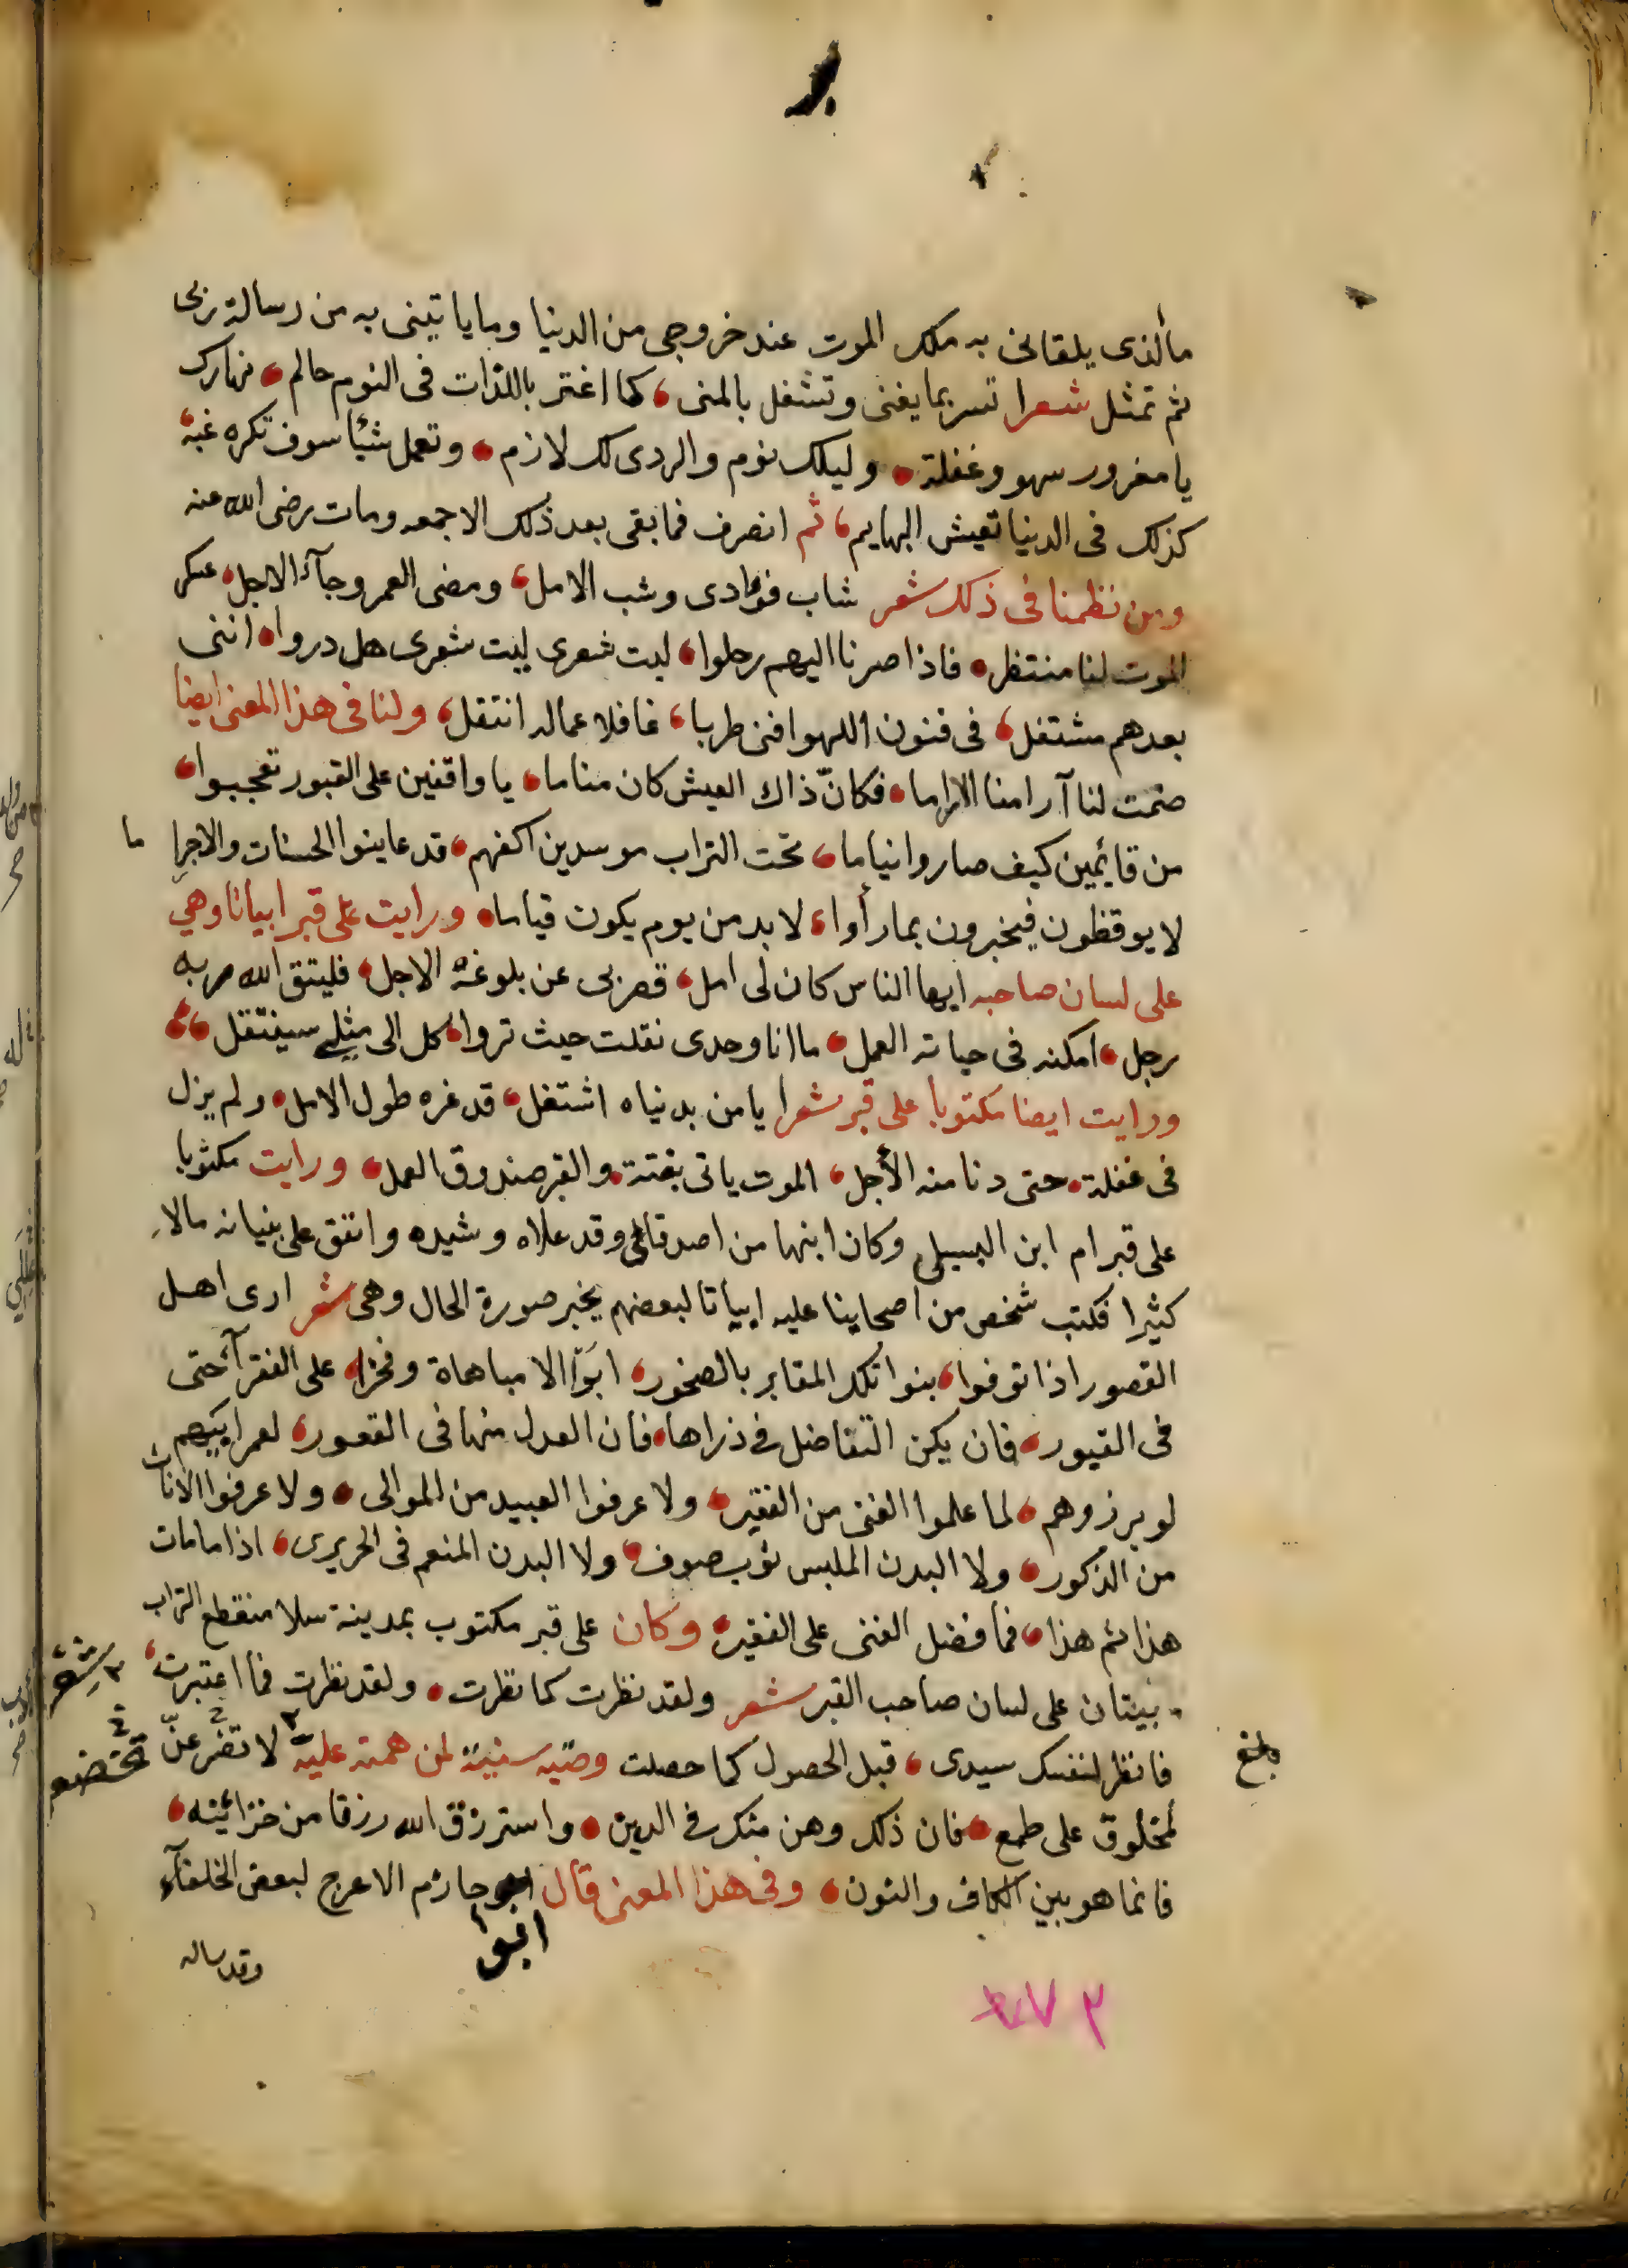 مالذى يلقانى به ملك الموت عند خروجى من الدنيا وبما ياتينى به من رسالة ربى
ثم تمثل شعرا تسر بما يفنى وتشغل بالمنى، كما اغتر باللذات فى النوم حالم، نهارك
يا مغرور سهو وغفلة، وليلك نوم والردى لك لازم، وتعمل شيأ سوف تكره غبه،
كذلك فى الدنيا تعيش البهايم، ثم انصرف فما بقى بعد ذلك الا جمعه ومات رضى الله عنه
ومن نظمنا فى ذلك شعر شاب فؤادى وشب الامل، ومضى العمر وجآء الاجل، عسكر
الموت لنا منتظر، فاذا صرنا اليهم رحلوا، ليت شعرى ليت شعرى هل دروا، اننى
بعدهم مشتغل، فى فنون اللهو افنى طربا، غافلا عما له انتقل، ولنا فى هذا المعنى ايضا
صمت لنا آرامنا الاراما، فكانّ ذاك العيش كان مناما، يا واقفين على القبور تعجبوا،
من قائمين كيف صاروا نياما، تحت التراب موسدين اكفهم، قد عاينوا الحسنات والاجرا ما
لا يوقظون فيخبرون بما رأوا، لا بد من يوم يكون قياما، ورايت على قبر ابياتا وهى
على لسان صاحبه ايها الناس كان لى امل، قصر بى عن بلوغه الاجل، فليتق الله ربه
رجل، امكنه فى حياته العمل، ما انا وحدى نقلت حيث تروا، كل الى مثلى سينتقل،
ورايت ايضا مكتوبا على قبر شعرا يا من بدنياه اشتغل، قد غره طول الامل، ولم يزل
فى غفلة، حتى دنا منه الأجل، الموت ياتى بغتة، والقبر صندوق العمل، ورايت مكتوبا
على قبر ام ابن البسيلى وكان ابنها من اصدقائى وقد علاه وشيده واتفق على بنيانه مالا
كثيرا فكتب شخص من اصحابنا عليه ابياتا لبعضهم يخبر صورة الحال وهى شعر ارى اهل
القصور اذا توفوا، بنوا تلك المقابر بالصخور، ابَوْا الا مباهاة وفخرا، على الفقرآء حتى
فى القبور، فان يكن التفاضل فى ذراها، فان العدل منها فى القعور، لعمر ابيهم
لو برزوهم، لما علموا الغنى من الفقير، ولا عرفوا العبيد من الموالى، ولا عرفوا الاناث
من الذكور، ولا البدن الملبس ثوب صوف، ولا البدن المنعم فى الحريرى، اذا ما مات
هذا ثم هذا، فما فضل الغنى على الفقير، وكان على قبر مكتوب بمدينة سلا منقطع التراب
بيتان على لسان صاحب القبر شعر ولقد نظرت كما نظرت، ولقد نظرت فما اعتبرت،
فانظر لنفسك سيدى، قبل الحصول كما حصلت وصّيه سنيّة لمن همته عليّة لا تضرعنّ
شعر
تخضعن
بلغ
لمخلوق على طمع، فان ذلك وهن منكر فى الدين، واسترزق الله رزقا من خزائينه،
فانما هو بين الكاف والنون، وفى هذا المعنى قال ابو حازم الاعرج لبعض الخلفآء
ابوا
وقد ساله